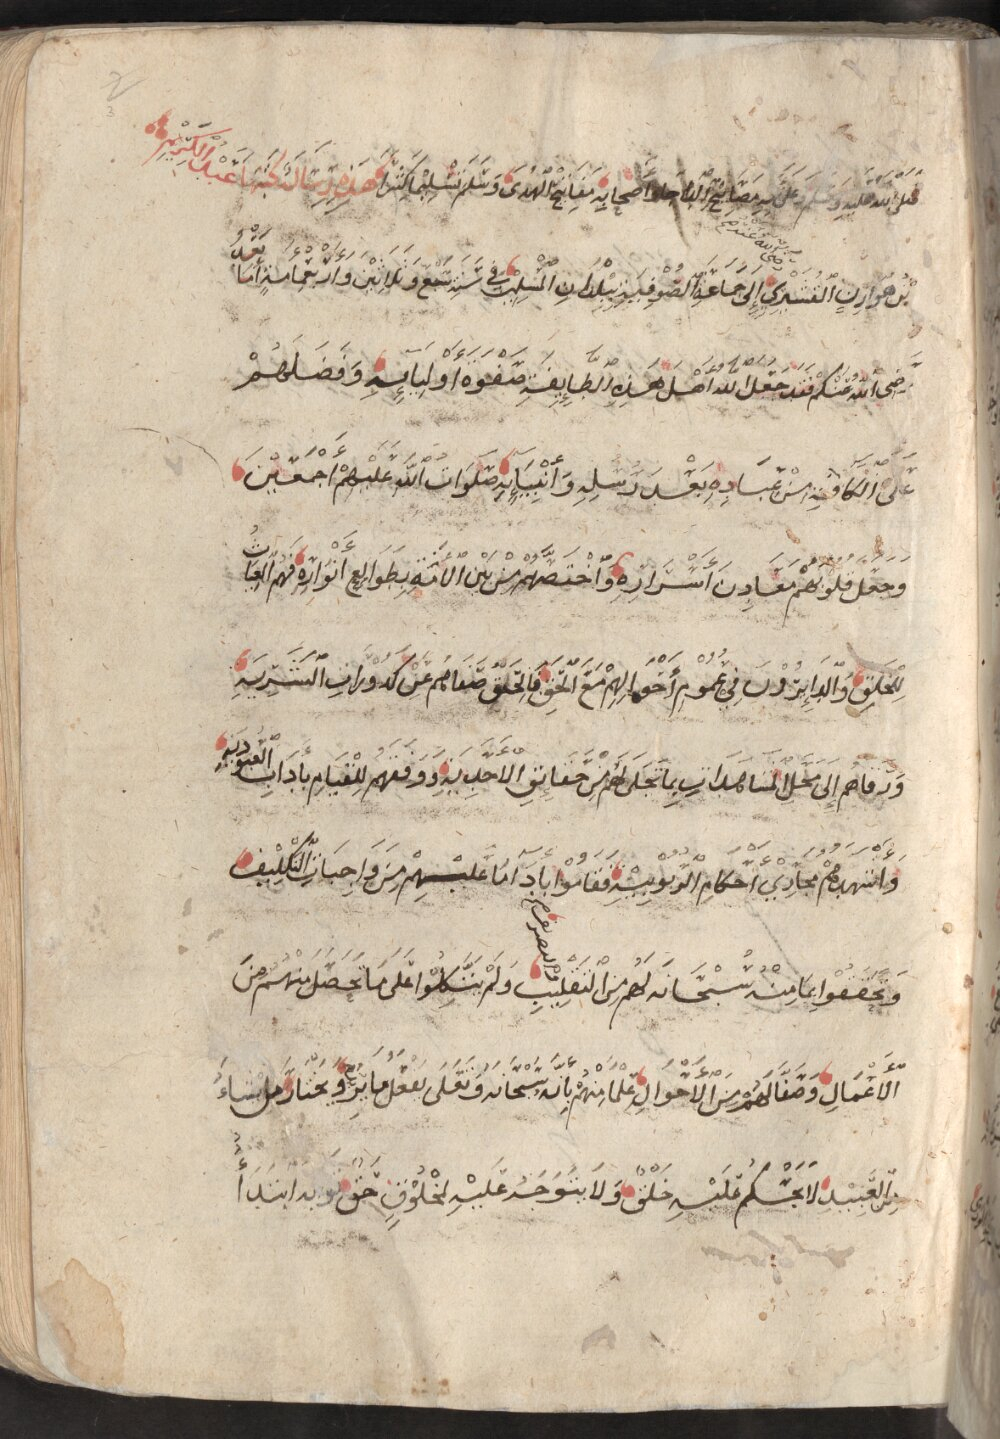 صَلَّى اللَّهُ عَلَيْهِ وَسَلَّمَ وَعَلَى آلِهِ مَصَابِيحِ الدُّجَا وَأَصْحَابِهِ مَفَاتِيحِ الْهُدَى وَسَلَّمَ تَسْلِيمًا كَثِيرًا هَذِهِ رِسَالَةٌ كَتَبَهَا عَبْدُ الْكَرِيمِ
رضي الله عنهم
بْنُ هَوَازِنِ الْقُشَيْرِي إِلَى جَمَاعَةِ الصُّوفِيَّةِ بِبُلْدَانِ الْمُسْلِمِينَ فِي سَنَةِ سَبْعٍ وَثَلَاثِيْنَ وَأَرْبَعِمِائَةٍ أَمَّا بَعْدُ
رَضِيَ اللَّهُ عَنْكُمْ فَقَدْ جَعَلَ اللَّهُ أَهْلَ هَذِهِ الطَّايِفَةِ صَفْوَةَ أَوْلِيَايِهِ وَفَضَّلَهُمْ
عَلَى الْكَافَّةِ مِنْ عِبَادِهِ بَعْدَ رُسُلِهِ وَأَنْبِيَايِهِ صَلَوَاتُ اللَّهِ عَلَيْهِمْ أَجْمَعِيْنَ
وَجَعَلَ قُلُوبَهُمْ مَعَادِنَ أَسْرَارِهِ وَاخْتَصَّهُمْ مِنْ بَيْنِ الْأُمَّةِ بِطَوَالِعِ أَنْوَارِهِ فَهُمُ الْغِيَاثُ
لِلْخَلْقِ وَالدَّايِرُوْنَ فِي عُمُوْمِ أَحْوَالِهِمْ مَعَ الْحَقِّ بِالْحَقِّ صَفَاهُمْ عَنْ كَدُوْرَاتِ الْبَشَرِيَّةِ
وَرَقَاهُمْ إِلَى مَحَلِّ الْمُشَاهَدَاتِ بِمَا تَجَلَّى لَهُمْ مِنْ حَقَايِقِ الْأَحَدِيَّةِ وَوَفَّقَهُمْ لِلْقِيَامِ بِآدَابِ الْعُبُوْدِيَّةِ
وَأَشْهَدَهُمْ مَجَارِيَ أَحْكَامِ الرُّبُوْبِيَّةِ فَقَامُوْا بِأَدَاءِ مَا عَلَيْهِمْ مِنْ وَاجِبَاتِ التَّكْلِيْفِ
وَتَحَقَّقُوْا بِمَا مِنْهُ سُبْحَانَهُ لَهُمْ مِنَ التَّقْلِيْبِ وَلَمْ يَتَّكِلُوْا عَلَى مَا حَصَلَ مِنْهُمْ مِنَ
الْأَعْمَالِ وَصَفَا لَهُمْ مِنَ الْأَحْوَالِ عِلْمًا مِنْهُمْ بِأَنَّهُ سُبْحَانَهُ وَتَعَالَى يَفْعَلُ مَا يُرِيْدُ وَيَخْتَارُ مَنْ يَشَاءُ
مِنَ الْعَبِيْدِ لَا يَحْكُمُ عَلَيْهِ خَلْقٌ وَلَا يَتَوَجَّهُ عَلَيْهِ لِمَخْلُوْقٍ حَقٌّ ثَوَابُهُ ابْتِدَاءُ